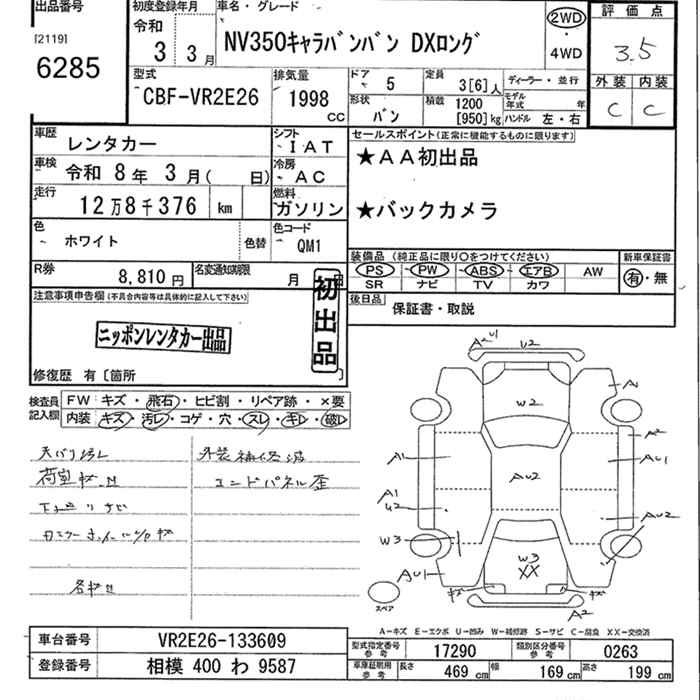 出品番号
[2119]
6285
初度登録年月
令和
3 3月
車名・グレード
NV350キャラバンバン DXロング
2WD
・
4WD
評価点
3.5
外装 内装
C C
型式
CBF-VR2E26
排気量
1998
CC
ドア 5
定員 3[6]人
ディーラー・並行
形状 バン
積載 1200
[950]kg
モデル年式 年
ハンドル 左・右
車歴 レンタカー
シフト IAT
セールスポイント(正常に機能するものに限ります)
★AA初出品
★バックカメラ
車検 令和 8年 3月( 日)
冷房 AC
走行 12万8千376 km
燃料 ガソリン
色 ホワイト
色替
色コード QM1
装備品(純正品に限り〇をつけてください)
PS PW ABS エアB AW
SR ナビ TV カワ
新車保証書
有・無
R券 8,810円
名変通知期限 月 日
後日品 保証書・取説
注意事項申告欄(不具合内容等は具体的に記入して下さい)
初出品
ニッポンレンタカー出品
修復歴 有〔箇所
検査員記入欄
FW キズ・飛石・ヒビ割・リペア跡・×要
内装 キズ・汚レ・コゲ・穴・スレ・キレ・破レ
天バリ汚レ
荷室キズ、凹
下廻りサビ
外装補修済
コンドパネル歪
A2 U1 U2
W2
A1
A2
A1
AU1
AU2
A1
U2
AU2
W3
W3
XX
AU1
キズ キズ
A2
スペア
A-キズ E-エクボ U-凹み W-補修跡 S-サビ C-腐食 XX-交換済
車台番号 VR2E26-133609
登録番号 相模 400 わ 9587
型式指定番号 参考 17290
類別区分番号 参考 0263
車庫証明用 参考
長さ 469 cm 幅 169 cm 高さ 199 cm